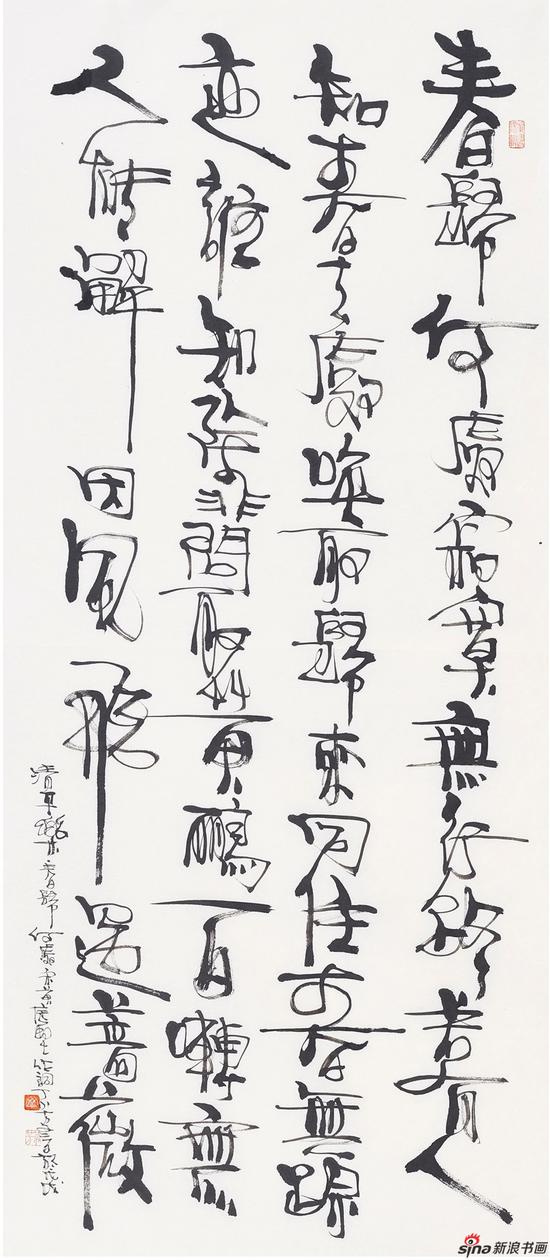 春歸何處寂寞無行路若有人
知春去處喚取歸來同住春無蹤
迹誰知除非問取黃鸝百囀無
人能解因風飛過薔薇
清平樂春歸何處宋黃庭堅
sina新浪书画